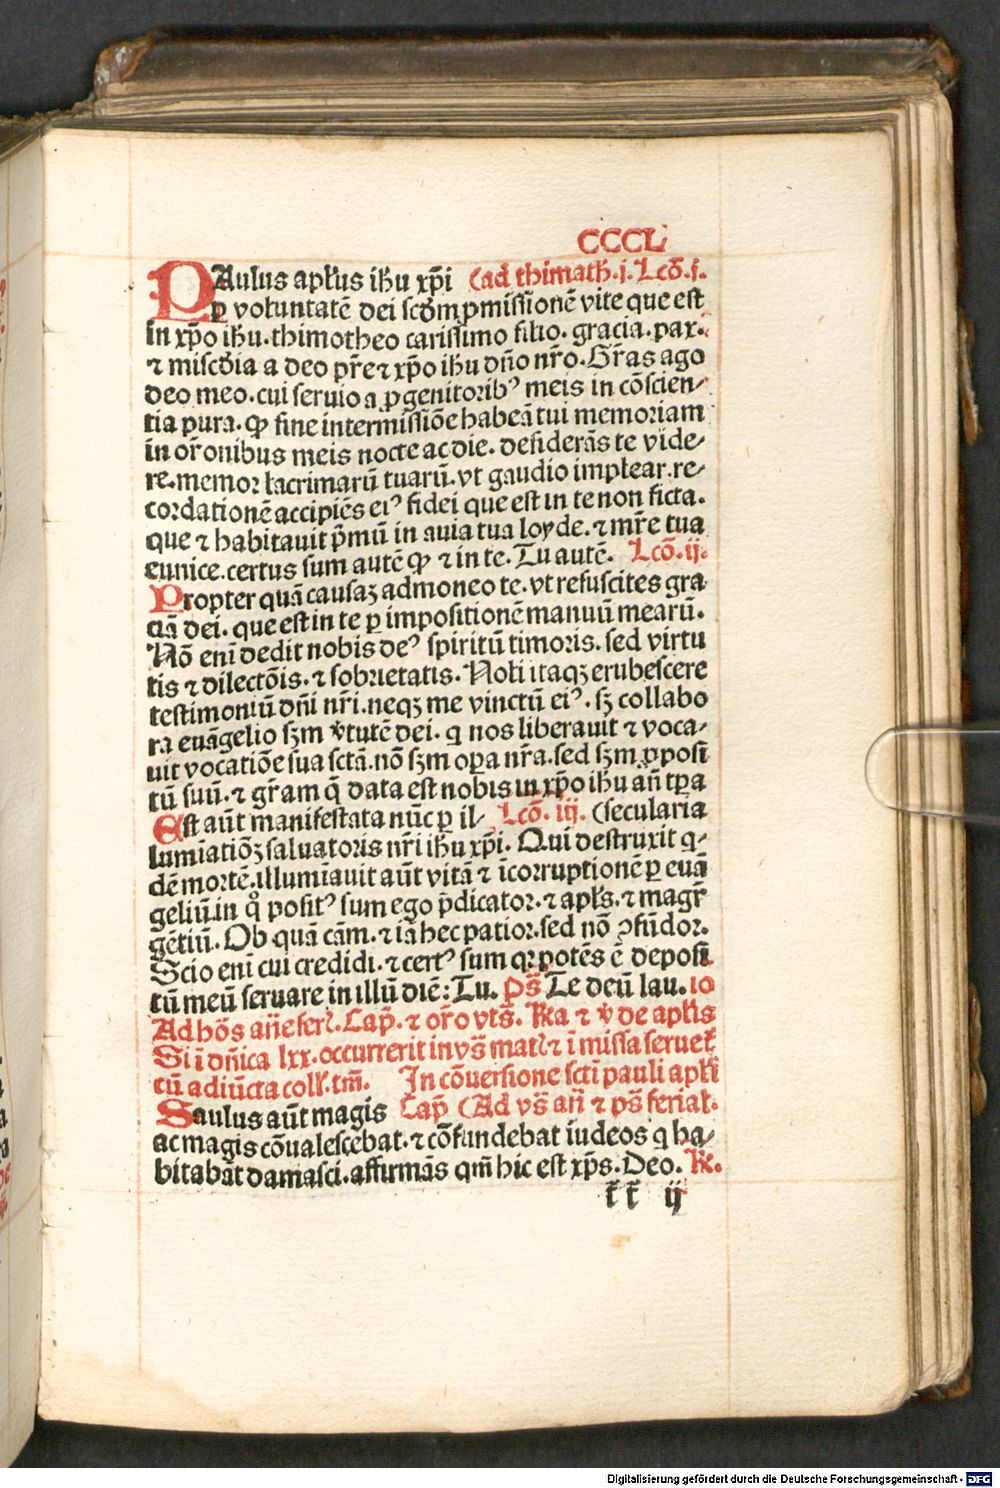 CCCL
PAulus apłus ihu xp̄i (ad thimath̄.j. Lcō.j.
ꝑ voluntatē dei scd̄m ꝓmissionē vite que est
in xp̄o ihu.thimotheo carissimo filio. gracia.pax.
⁊ misc̄dia a deo pr̄e ⁊ xp̄o ihu dn̄o nr̄o. Gr̄as ago
deo meo.cui seruio a ꝓgenitorib⁹ meis in cōscien⸗
tia pura. ꝙ sine intermissiōe habeā tui memoriam
in or̄onibus meis nocte ac die. desiderās te vide⸗
re.memor lacrimarū tuarū.vt gaudio implear.re⸗
cordationē accipiēs ei⁹ fidei que est in te non ficta.
que ⁊ habitauit p̄mū in auia tua loyde. ⁊ mr̄e tua
eunice.certus sum autē ꝙ ⁊ in te. Tu autē. Lcō.ij.
Propter quā causaꝫ admoneo te. vt resuscites gra
ciā dei. que est in te ꝑ impositionē manuū mearū.
Nō eni̅ dedit nobis de⁹ spiritū timoris. sed virtu
tis ⁊ dilectōis. ⁊ sobrietatis. Noli itaqꝫ erubescere
testimoniū dn̄i nr̄i.neqꝫ me vinctū ei⁹. sꝫ collabo
ra euāgelio sꝫm v̄tutē dei. q nos liberauit ⁊ voca⸗
uit vocatiōe sua sctā.nō sꝫm oꝑa nr̄a.sed sꝫm ꝓposi
tū suū. ⁊ gr̄am q̄ data est nobis in xp̄o ihu an̄ tp̄a
Est aūt manifestata nūc ꝑ il⸗ Lcō. iij. (secularia
lumiatiōꝫ saluatoris nr̄i ihu xp̄i. Qui destruxit q⸗
dē mortē.illumiauit aūt vitā ⁊ īcorruptionē ꝑ euā
geliū.in qͦ posit⁹ sum ego p̄dicator. ⁊ apłs. ⁊ magr̄
gētiū. Ob quā cām. ⁊ iā hec patior.sed nō ꝯfūdor.
Scio eni̅ cui credidi. ⁊ cert⁹ sum qꝛ potēs ē deposi
tū meū seruare in illū diē: Tu. ps̄ Te deū lau. io
Ad hōs an̄e ferł. Cap̄. ⁊ or̄o vts̄. R̄a ⁊ v̄ de apłis
Si ī dn̄ica lxx.occurrerit invs̄ matł ⁊ ī missa seruet̄
cū adiūcta coll̄.tm̄. In cōuersione scti̅ pauli apłi
Saulus aūt magis Cap̄ (Ad vs̄ an̄ ⁊ ps̄ feriał.
ac magis cōualescebat. ⁊ cōfundebat iudeos q ha⸗
bitabāt damasci.affirmās qm̄ hic est xp̄s. Deo. R̄.
ꝉꝉ ij
Digitalisierung gefördert durch die Deutsche Forschungsgemeinschaft - DFG